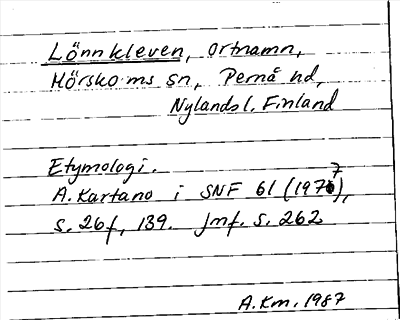 Lönnkleven, ortnamn,
Mörskoms sn, Pernå hd,
Nylands l, Finland
Etymologi.
A. Kartano i SNF 61 (1977),
s. 26f, 139. Jmf. s. 262
A.Km. 1987